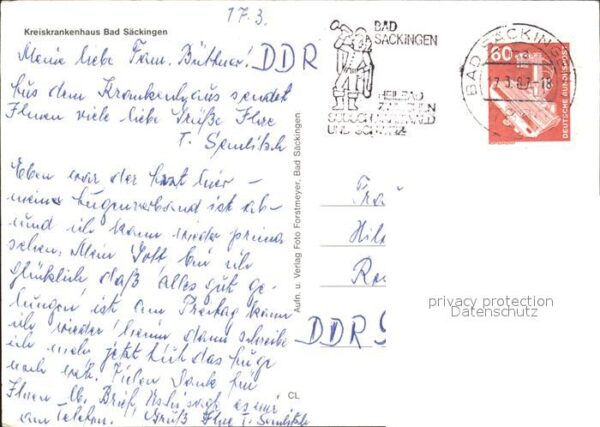 17.3.
Kreiskrankenhaus Bad Säckingen
Meine liebe Fam. Büttner! DDR
Aus dem Krankenhaus sendet
Ihnen viele liebe Grüße Ihre
T.
Eben war der Arzt hier –
mein Augenverband ist ab –
und ich kann wieder prima
sehen. Mein Gott bin ich
glücklich daß alles gut ge-
lungen ist am Freitag kann
ich wieder heim dann schreibe
ich mehr jetzt tut das Auge
noch weh. Vielen Dank für
Ihren lb. Brief,
am Telefon. Gruß Ihre T.
Aufn. u. Verlag Foto Forstmeyer, Bad Säckingen
CL
BAD
SÄCKINGEN
HEILBAD
ZWISCHEN
SÜDSCHWARZWALD
UND SCHWEIZ
BAD SÄCKINGEN
17.3.87-18
60
DEUTSCHE BUNDESPOST
DDR
privacy protection
Datenschutz